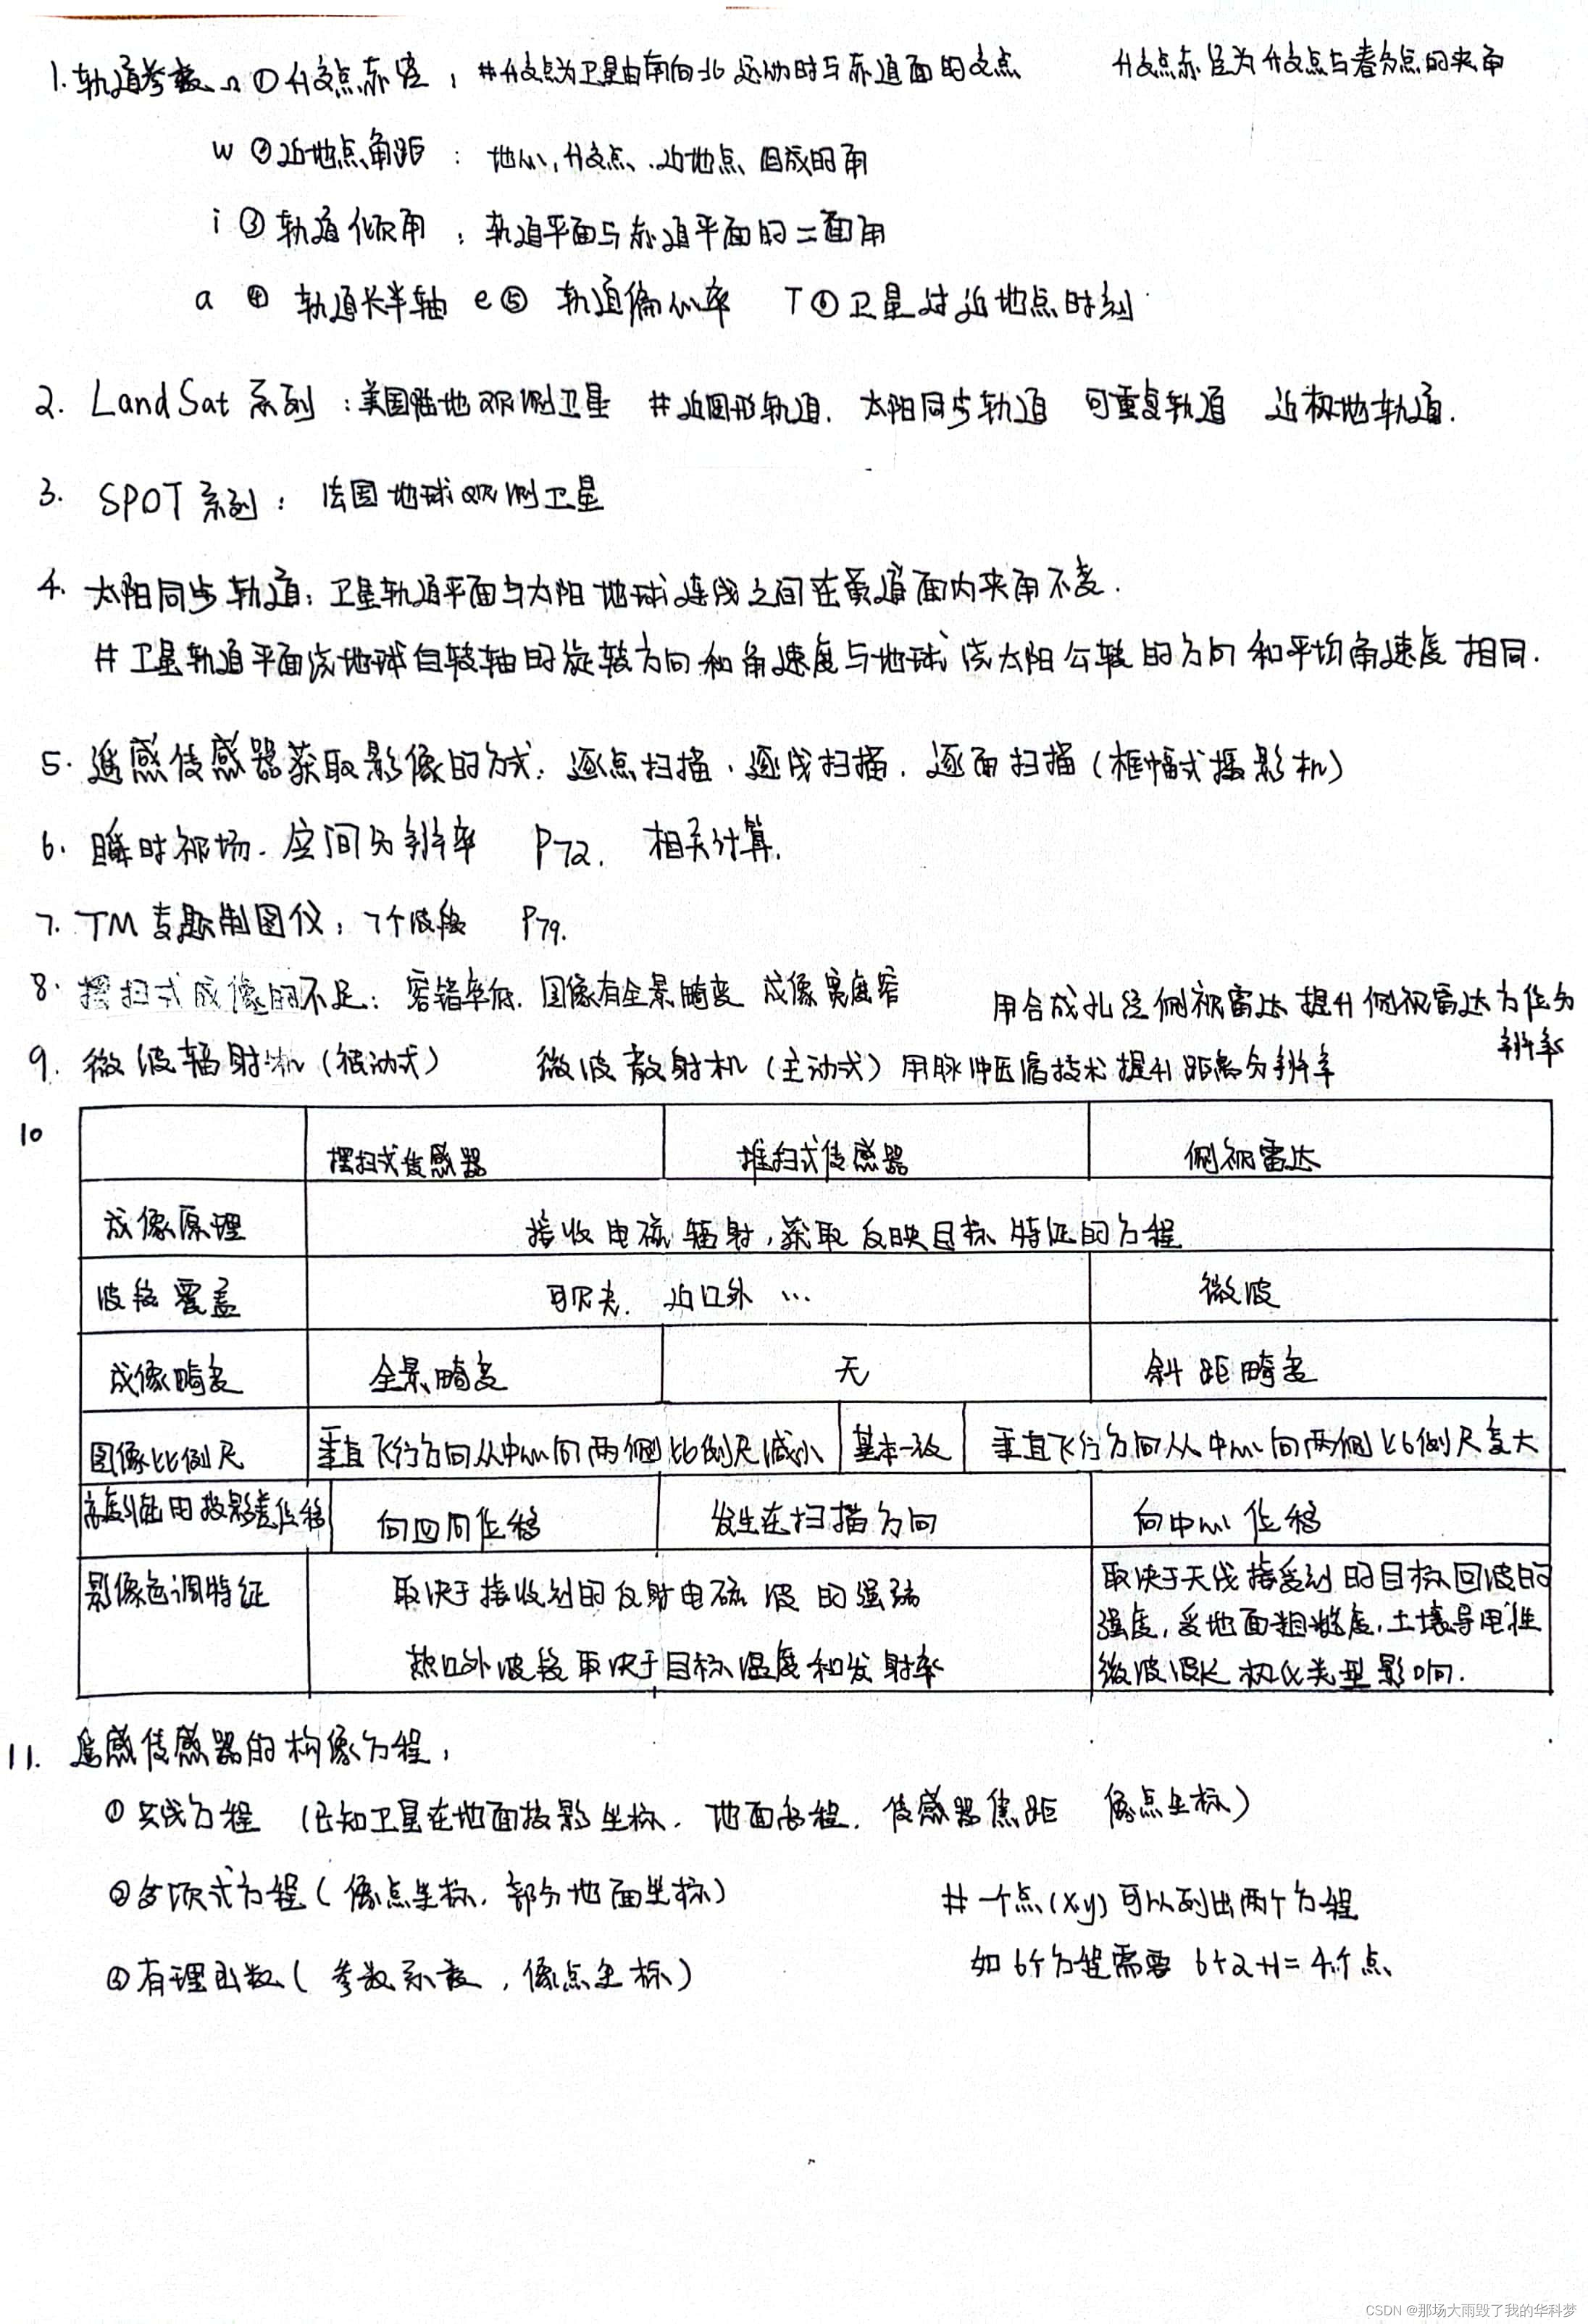 1. 轨道参数 Ω ① 升交点赤径 , #升交点为卫星由南向北运动时与赤道面的交点 升交点赤径为升交点与春分点的夹角
w ② 近地点角距 : 地心, 升交点、近地点 组成的角
i ③ 轨道倾角 : 轨道平面与赤道平面的二面角
a ④ 轨道长半轴 e ⑤ 轨道偏心率 T ⑥ 卫星过近地点时刻
2. LandSat 系列 : 美国陆地观测卫星 # 近圆形轨道. 太阳同步轨道 可重复轨道 近极地轨道.
3. SPOT 系列 : 法国地球观测卫星
4. 太阳同步轨道: 卫星轨道平面与太阳地球连线之间在黄道面内夹角不变.
# 卫星轨道平面绕地球自转轴的旋转方向和角速度与地球绕太阳公转的方向和平均角速度相同.
5. 遥感传感器获取影像的方式: 逐点扫描. 逐线扫描. 逐面扫描 (框幅式摄影机)
6. 瞬时视场. 空间分辨率 P72. 相关计算.
7. TM 专题制图仪, 7个波段 P79.
8. 摆扫式成像的不足: 容错率低. 图像有全景畸变 成像宽度窄 用合成孔径侧视雷达提升侧视雷达方位分
辨率
9. 微波辐射机 (被动式) 微波散射机 (主动式) 用脉冲压缩技术提升距离分辨率
10
摆扫式传感器 推扫式传感器 侧视雷达
成像原理 接收电磁辐射, 获取反映目标特征的方程
波段覆盖 可见光. 近红外 … 微波
成像畸变 全景畸变 无 斜距畸变
图像比例尺 垂直飞行方向从中心向两侧比例尺减小 基本一致 垂直飞行方向从中心向两侧比例尺变大
高差引起的投影差位移 向四周位移 发生在扫描方向 向中心位移
影像色调特征 取决于接收到的反射电磁波的强弱
热红外波段取决于目标温度和发射率
取决于天线接受到的目标回波的
强度, 受地面粗糙度, 土壤导电性
微波波长 极化类型影响.
11. 遥感传感器的构像方程,
① 共线方程 (已知卫星在地面投影坐标. 地面高程. 传感器焦距 像点坐标)
② 多项式方程 ( 像点坐标. 部分地面坐标)
# 一个点(x,y) 可以列出两个方程
③ 有理函数 ( 参数系数 , 像点坐标)
如 6个方程需要 6÷2+1= 4个点
CSDN @那场大雨毁了我的华科梦